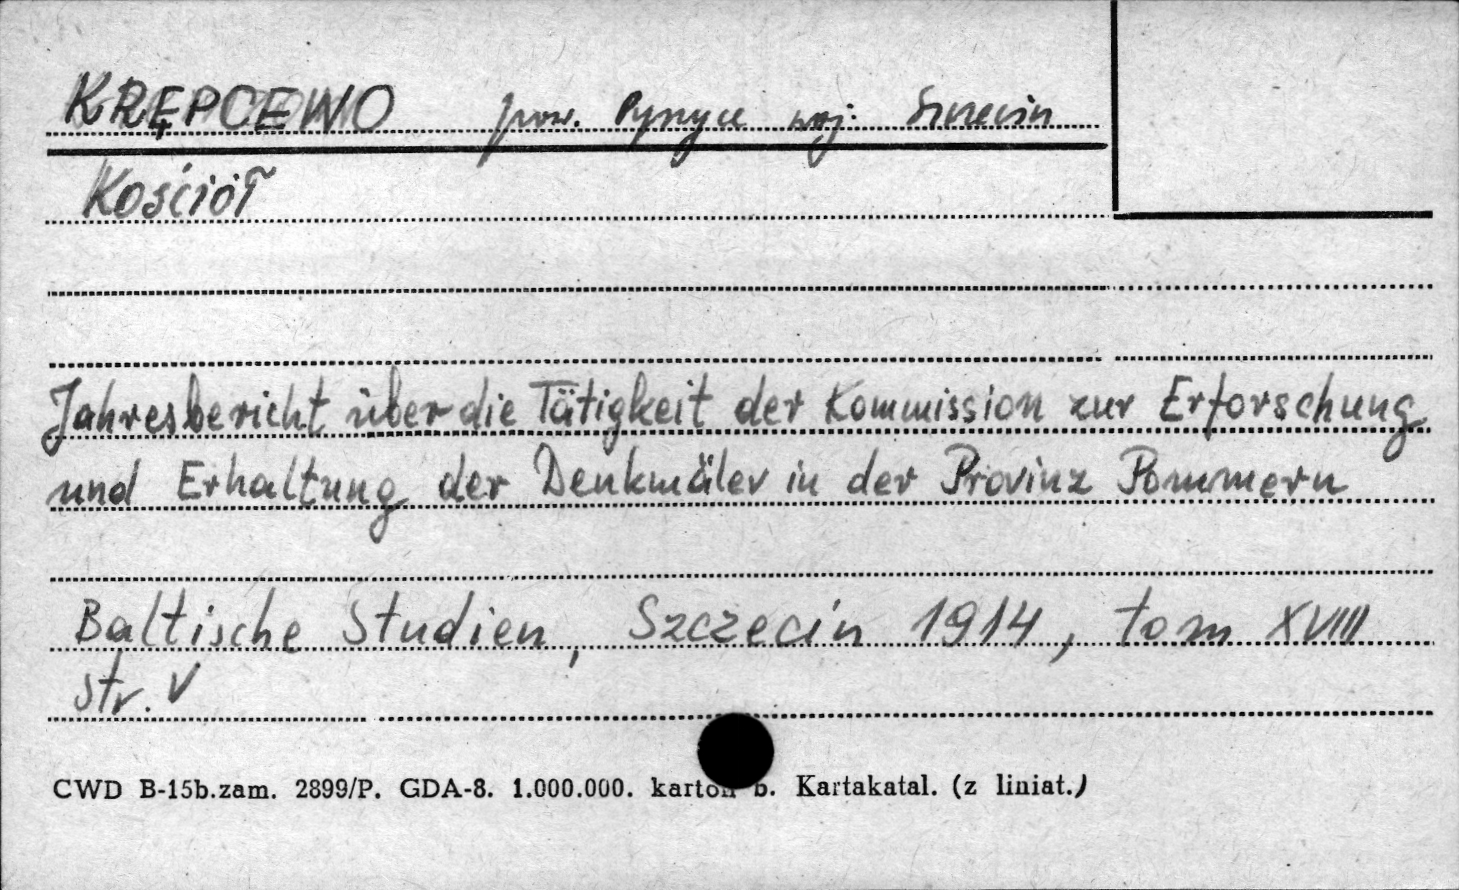 KRĘPCEWO pow. Pyrzyce woj. Szczecin
Kościół
Jahresbericht über die Tätigkeit der Kommission zur Erforschung
und Erhaltung der Denkmäler in der Provinz Pommern
Baltische Studien, Szczecin 1914, tom XVIII
str. V
CWD B-15b.zam. 2899/P. GDA-8. 1.000.000. karton b. Kartakatal. (z liniat.)